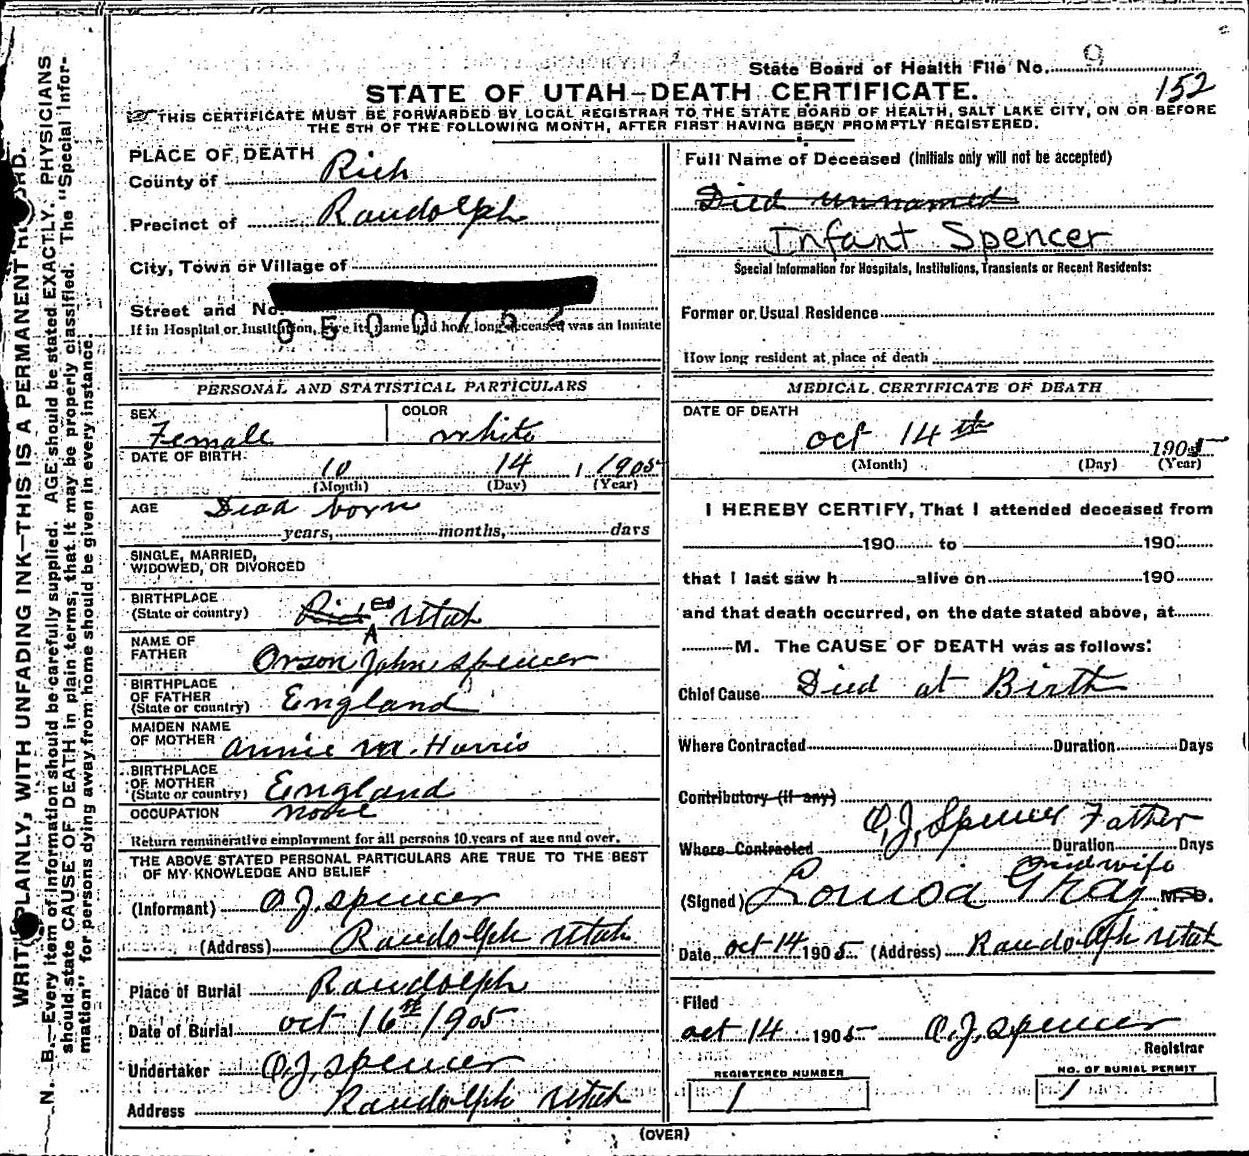 State Board of Health File No. 9
152
STATE OF UTAH—DEATH CERTIFICATE.
THIS CERTIFICATE MUST BE FORWARDED BY LOCAL REGISTRAR TO THE STATE BOARD OF HEALTH, SALT LAKE CITY, ON OR BEFORE
THE 5TH OF THE FOLLOWING MONTH, AFTER FIRST HAVING BEEN PROMPTLY REGISTERED.
PLACE OF DEATH
County of Rich
Precinct of Randolph
City, Town or Village of
Street and No.
0500152
If in Hospital or Institution, give its name and how long deceased was an Inmate
Full Name of Deceased (Initials only will not be accepted)
Died unnamed
Infant Spencer
Special Information for Hospitals, Institutions, Transients or Recent Residents:
Former or Usual Residence
How long resident at place of death
PERSONAL AND STATISTICAL PARTICULARS
SEX
Female
COLOR
white
DATE OF BIRTH
10 14, 1905
(Month) (Day) (Year)
AGE Dead born
years, months, days
SINGLE, MARRIED,
WIDOWED, OR DIVORCED
BIRTHPLACE
(State or country) Rich Co Utah
NAME OF
FATHER Orson A John Spencer
BIRTHPLACE
OF FATHER
(State or country) England
MAIDEN NAME
OF MOTHER Annie M. Harris
BIRTHPLACE
OF MOTHER
(State or country) England
OCCUPATION none
Return remunerative employment for all persons 10 years of age and over.
THE ABOVE STATED PERSONAL PARTICULARS ARE TRUE TO THE BEST
OF MY KNOWLEDGE AND BELIEF
(Informant) O. J. Spencer
(Address) Randolph Utah
Place of Burial Randolph
Date of Burial oct 16th 1905
Undertaker O. J. Spencer
Address Randolph Utah
MEDICAL CERTIFICATE OF DEATH
DATE OF DEATH
oct 14th 1905
(Month) (Day) (Year)
I HEREBY CERTIFY, That I attended deceased from
190 to 190
that I last saw h alive on 190
and that death occurred, on the date stated above, at
M. The CAUSE OF DEATH was as follows:
Chief Cause Died at Birth
Where Contracted Duration Days
Contributory (if any)
O. J. Spencer Father
Where Contracted Duration Days
midwife
(Signed) Louisa Gray M.D.
Date oct 14 1905 (Address) Randolph Utah
Filed
oct 14 1905 O. J. Spencer
Registrar
REGISTERED NUMBER
1
NO. OF BURIAL PERMIT
1
(OVER)
WRITE PLAINLY, WITH UNFADING INK—THIS IS A PERMANENT RECORD.
N. B.—Every item of information should be carefully supplied. AGE should be stated EXACTLY. PHYSICIANS
should state CAUSE OF DEATH in plain terms, that it may be properly classified. The "Special Infor-
mation" for persons dying away from home should be given in every instance.